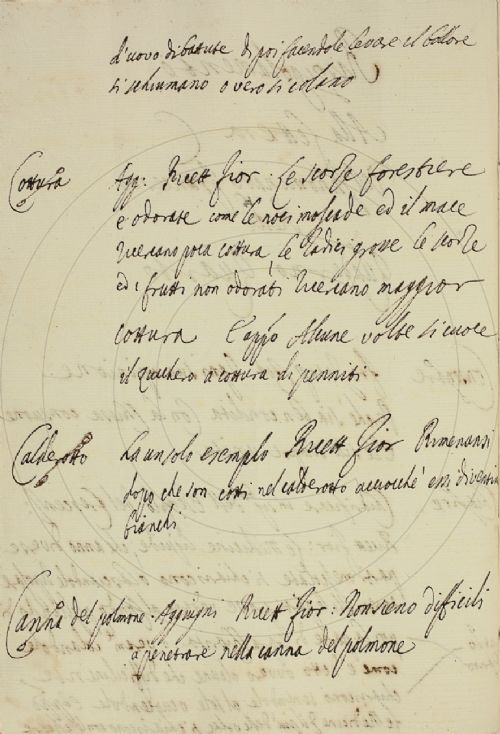 d'uovo dibattute di poi facendole levare il bollore
si schiumano o vero si colano
Cottura Agg: Ricett Fior. Le scorze forestiere
e odorate come le noci moscade ed il mace
ricercano poca cottura, le Radici grosse le scorze
ed i frutti non odorati ricercano maggior
cottura E app.o Alcune volte si cuoce
il zucchero a cottura di penniti
Calderotto ha un solo esemplo Ricett Fior Rimenansi
dopo che son cotti nel calderotto acciocchè essi diventin
bianchi
Canna del polmone. Aggiugni Ricett Fior: Non sieno difficili
a penetrare nella canna del polmone